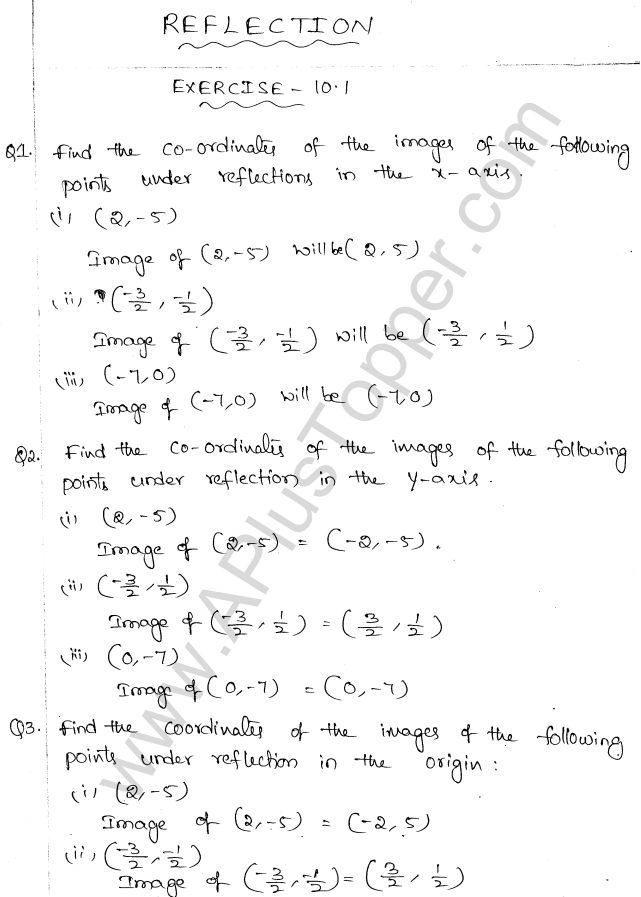 REFLECTION
EXERCISE - 10.1
Q1. Find the co-ordinates of the images of the following
points under reflections in the x-axis.
(i) (2, -5)
Image of (2, -5) will be (2, 5)
(ii) (-3/2, -1/2)
Image of (-3/2, -1/2) will be (-3/2, 1/2)
(iii) (-7, 0)
Image of (-7, 0) will be (-7, 0)
Q2. Find the co-ordinates of the images of the following
points under reflection in the y-axis.
(i) (2, -5)
Image of (2, -5) = (-2, -5).
(ii) (-3/2, 1/2)
Image of (-3/2, 1/2) = (3/2, 1/2)
(iii) (0, -7)
Image of (0, -7) = (0, -7)
Q3. Find the coordinates of the images of the following
points under reflection in the origin:
(i) (2, -5)
Image of (2, -5) = (-2, 5)
(ii) (-3/2, -1/2)
Image of (-3/2, -1/2) = (3/2, 1/2)
www.APlusTopper.com